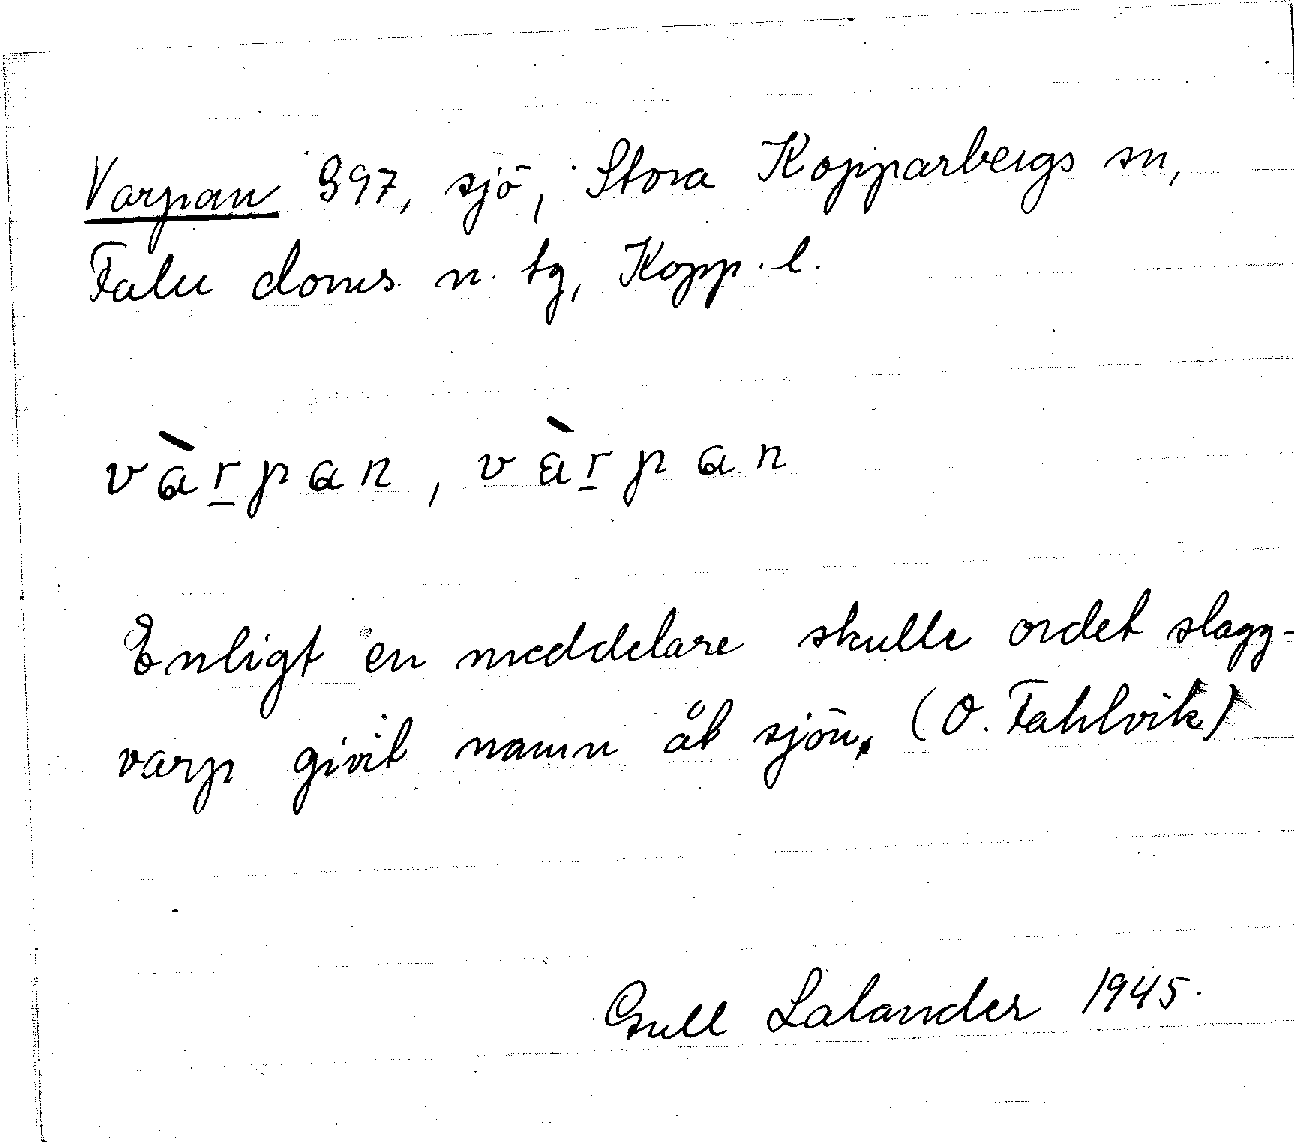 Varpan 997, sjö, Stora Kopparbergs sn,
Falu doms. n. tg, Kopp. l.
vàr̲pan, vàr̲pan
Enligt en meddelare skulle ordet slagg-
varp givit namn åt sjön. (O. Fahlvik)
Gull Lalander 1945.